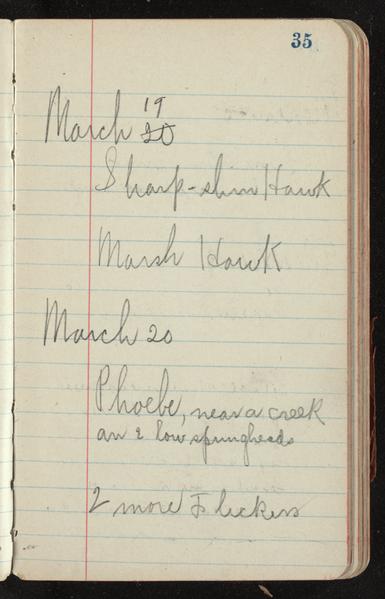 35
March 19
20
Sharp-shin Hawk
Marsh Hawk
March 20
Phoebe, near a creek
an & low springheads
2 more Flickers